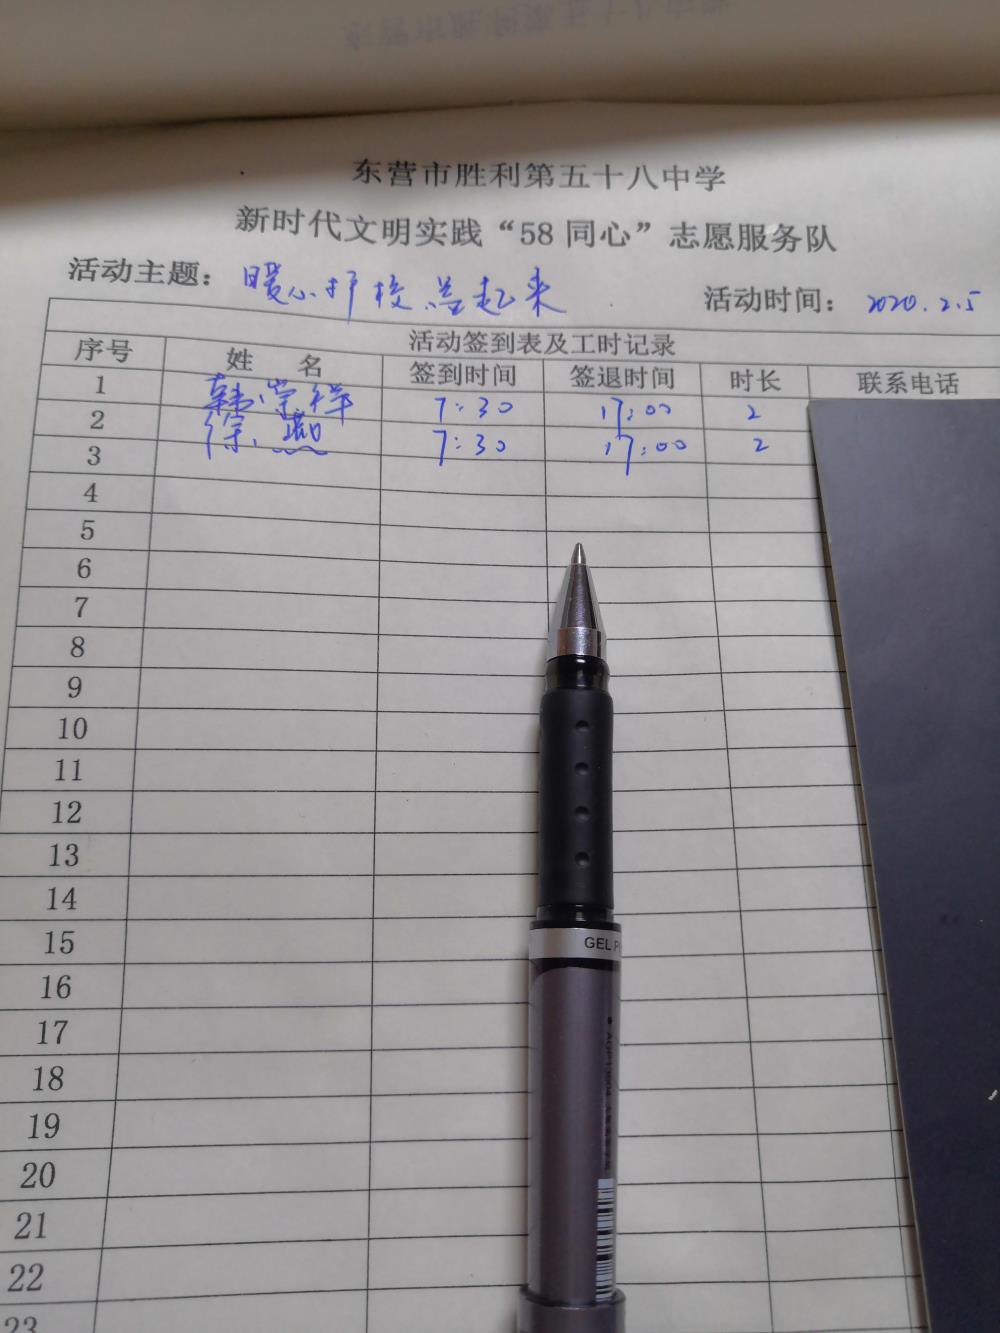 东营市胜利第五十八中学
新时代文明实践“58 同心”志愿服务队
活动主题： 暖心护校 益起来 活动时间： 2020.2.5
活动签到表及工时记录
序号 姓 名 签到时间 签退时间 时长 联系电话
1 韩崇祥 7:30 17:00 2
2 徐燕 7:30 17:00 2
3
4
5
6
7
8
9
10
11
12
13
14
15
16
17
18
19
20
21
22
23
GEL